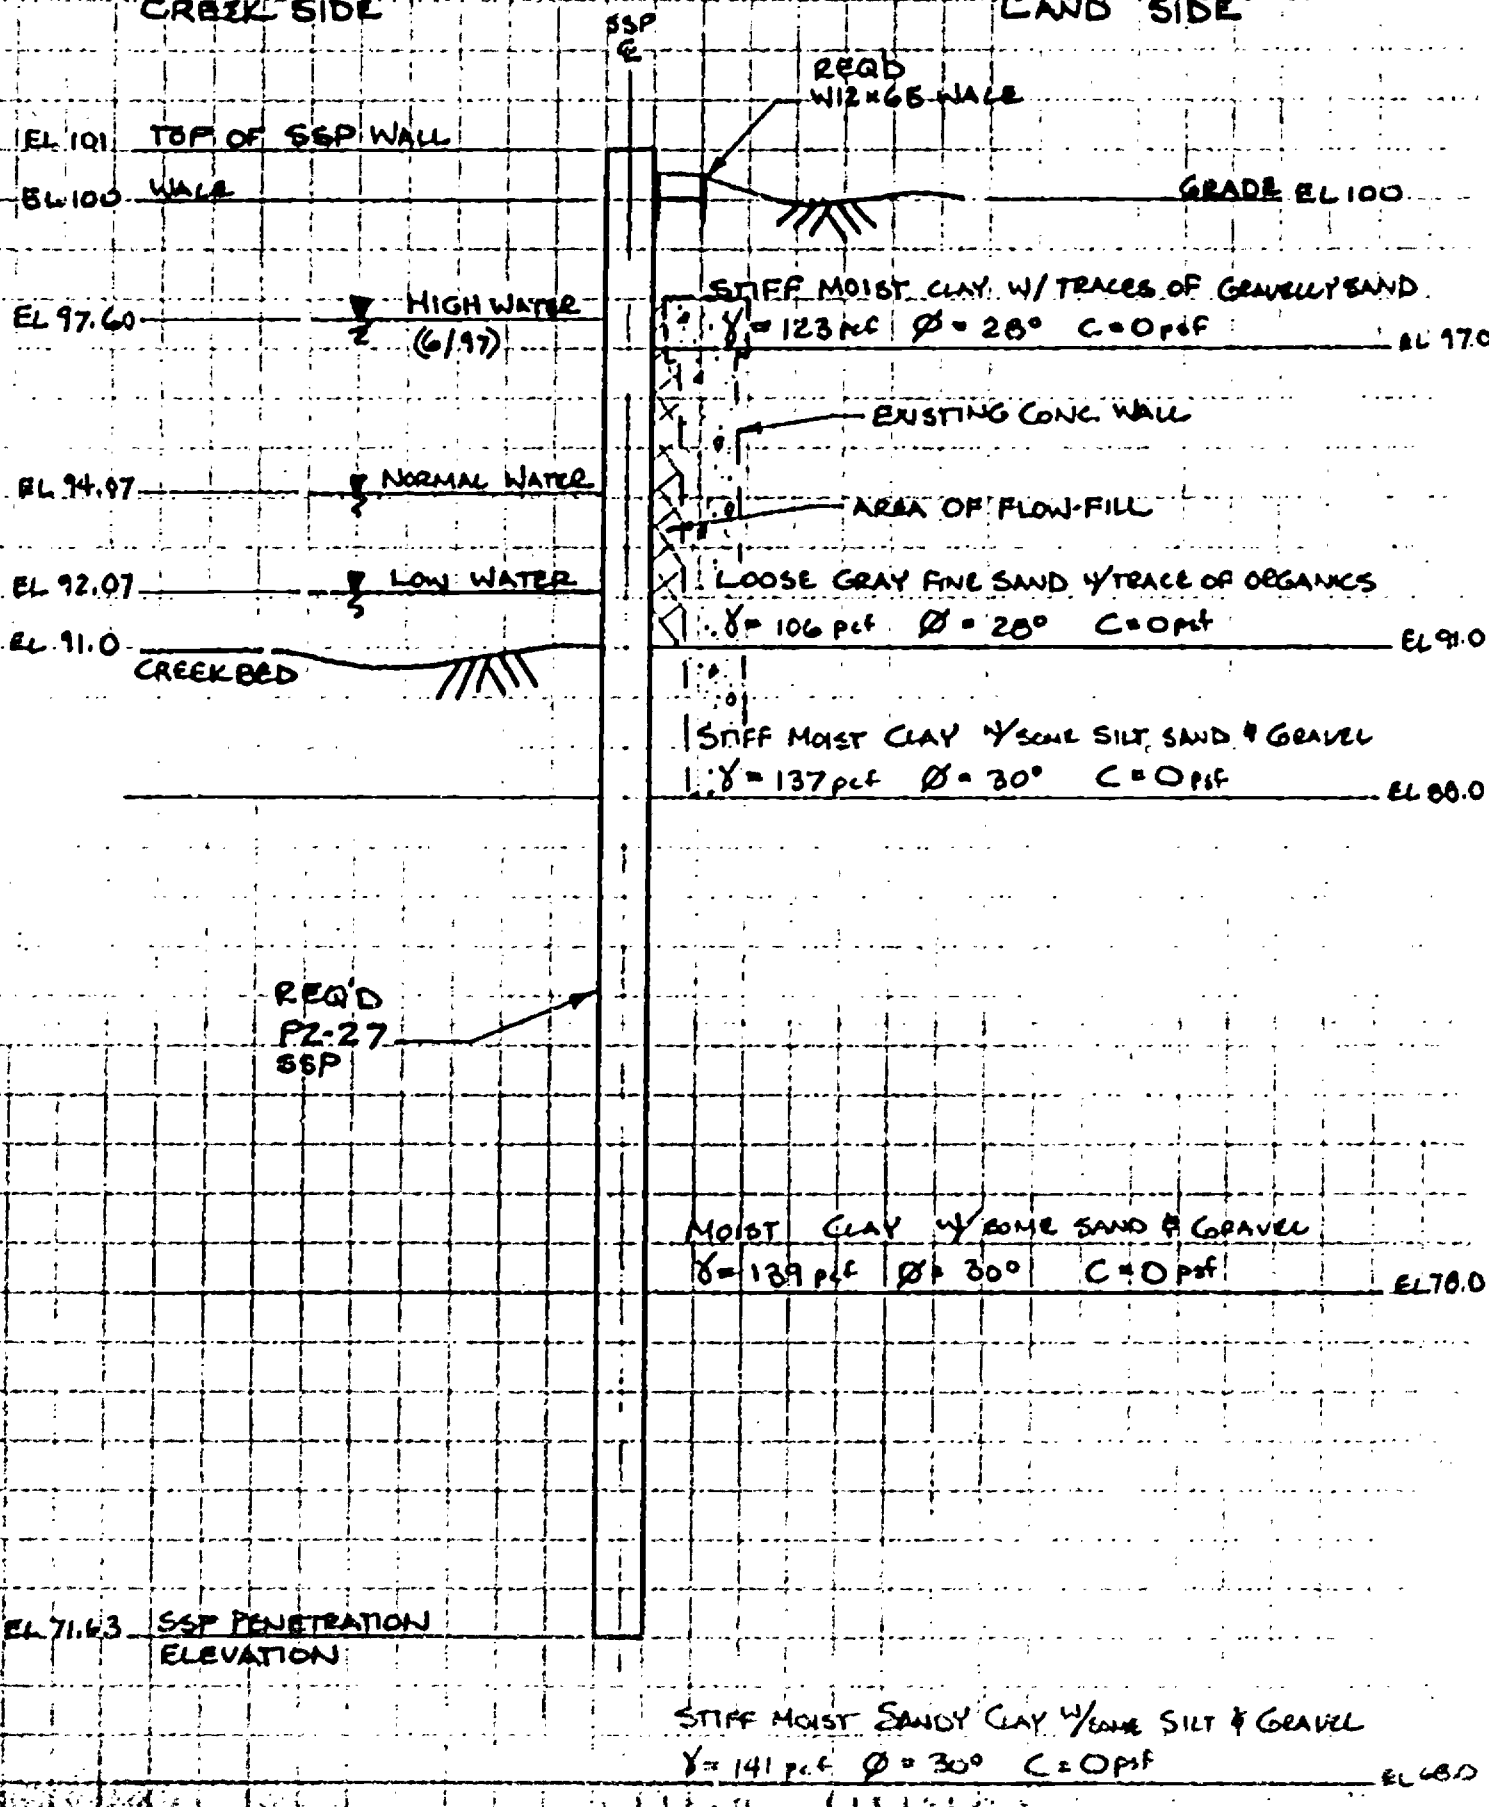 CREEK SIDE
LAND SIDE
SSP
℄
REQ'D
W12×65 WALE
EL 101 TOP OF SSP WALL
EL 100 WALE
GRADE EL 100
STIFF MOIST CLAY W/ TRACES OF GRAVELLY SAND
γ = 123 pcf Ø = 28° C = 0 psf
EL 97.0
EL 97.60
HIGH WATER
(6/97)
EXISTING CONC WALL
EL 94.07
NORMAL WATER
AREA OF FLOW-FILL
EL 92.07
LOW WATER
LOOSE GRAY FINE SAND W/ TRACE OF ORGANICS
γ = 106 pcf Ø = 28° C = 0 psf
EL 91.0
EL 91.0
CREEK BED
STIFF MOIST CLAY W/ SOME SILT, SAND & GRAVEL
γ = 137 pcf Ø = 30° C = 0 psf
EL 88.0
REQ'D
PZ-27
SSP
MOIST CLAY W/ SOME SAND & GRAVEL
γ = 139 pcf Ø = 30° C = 0 psf
EL 78.0
EL 71.63 SSP PENETRATION
ELEVATION
STIFF MOIST SANDY CLAY W/ SOME SILT & GRAVEL
γ = 141 pcf Ø = 30° C = 0 psf
EL 68.0